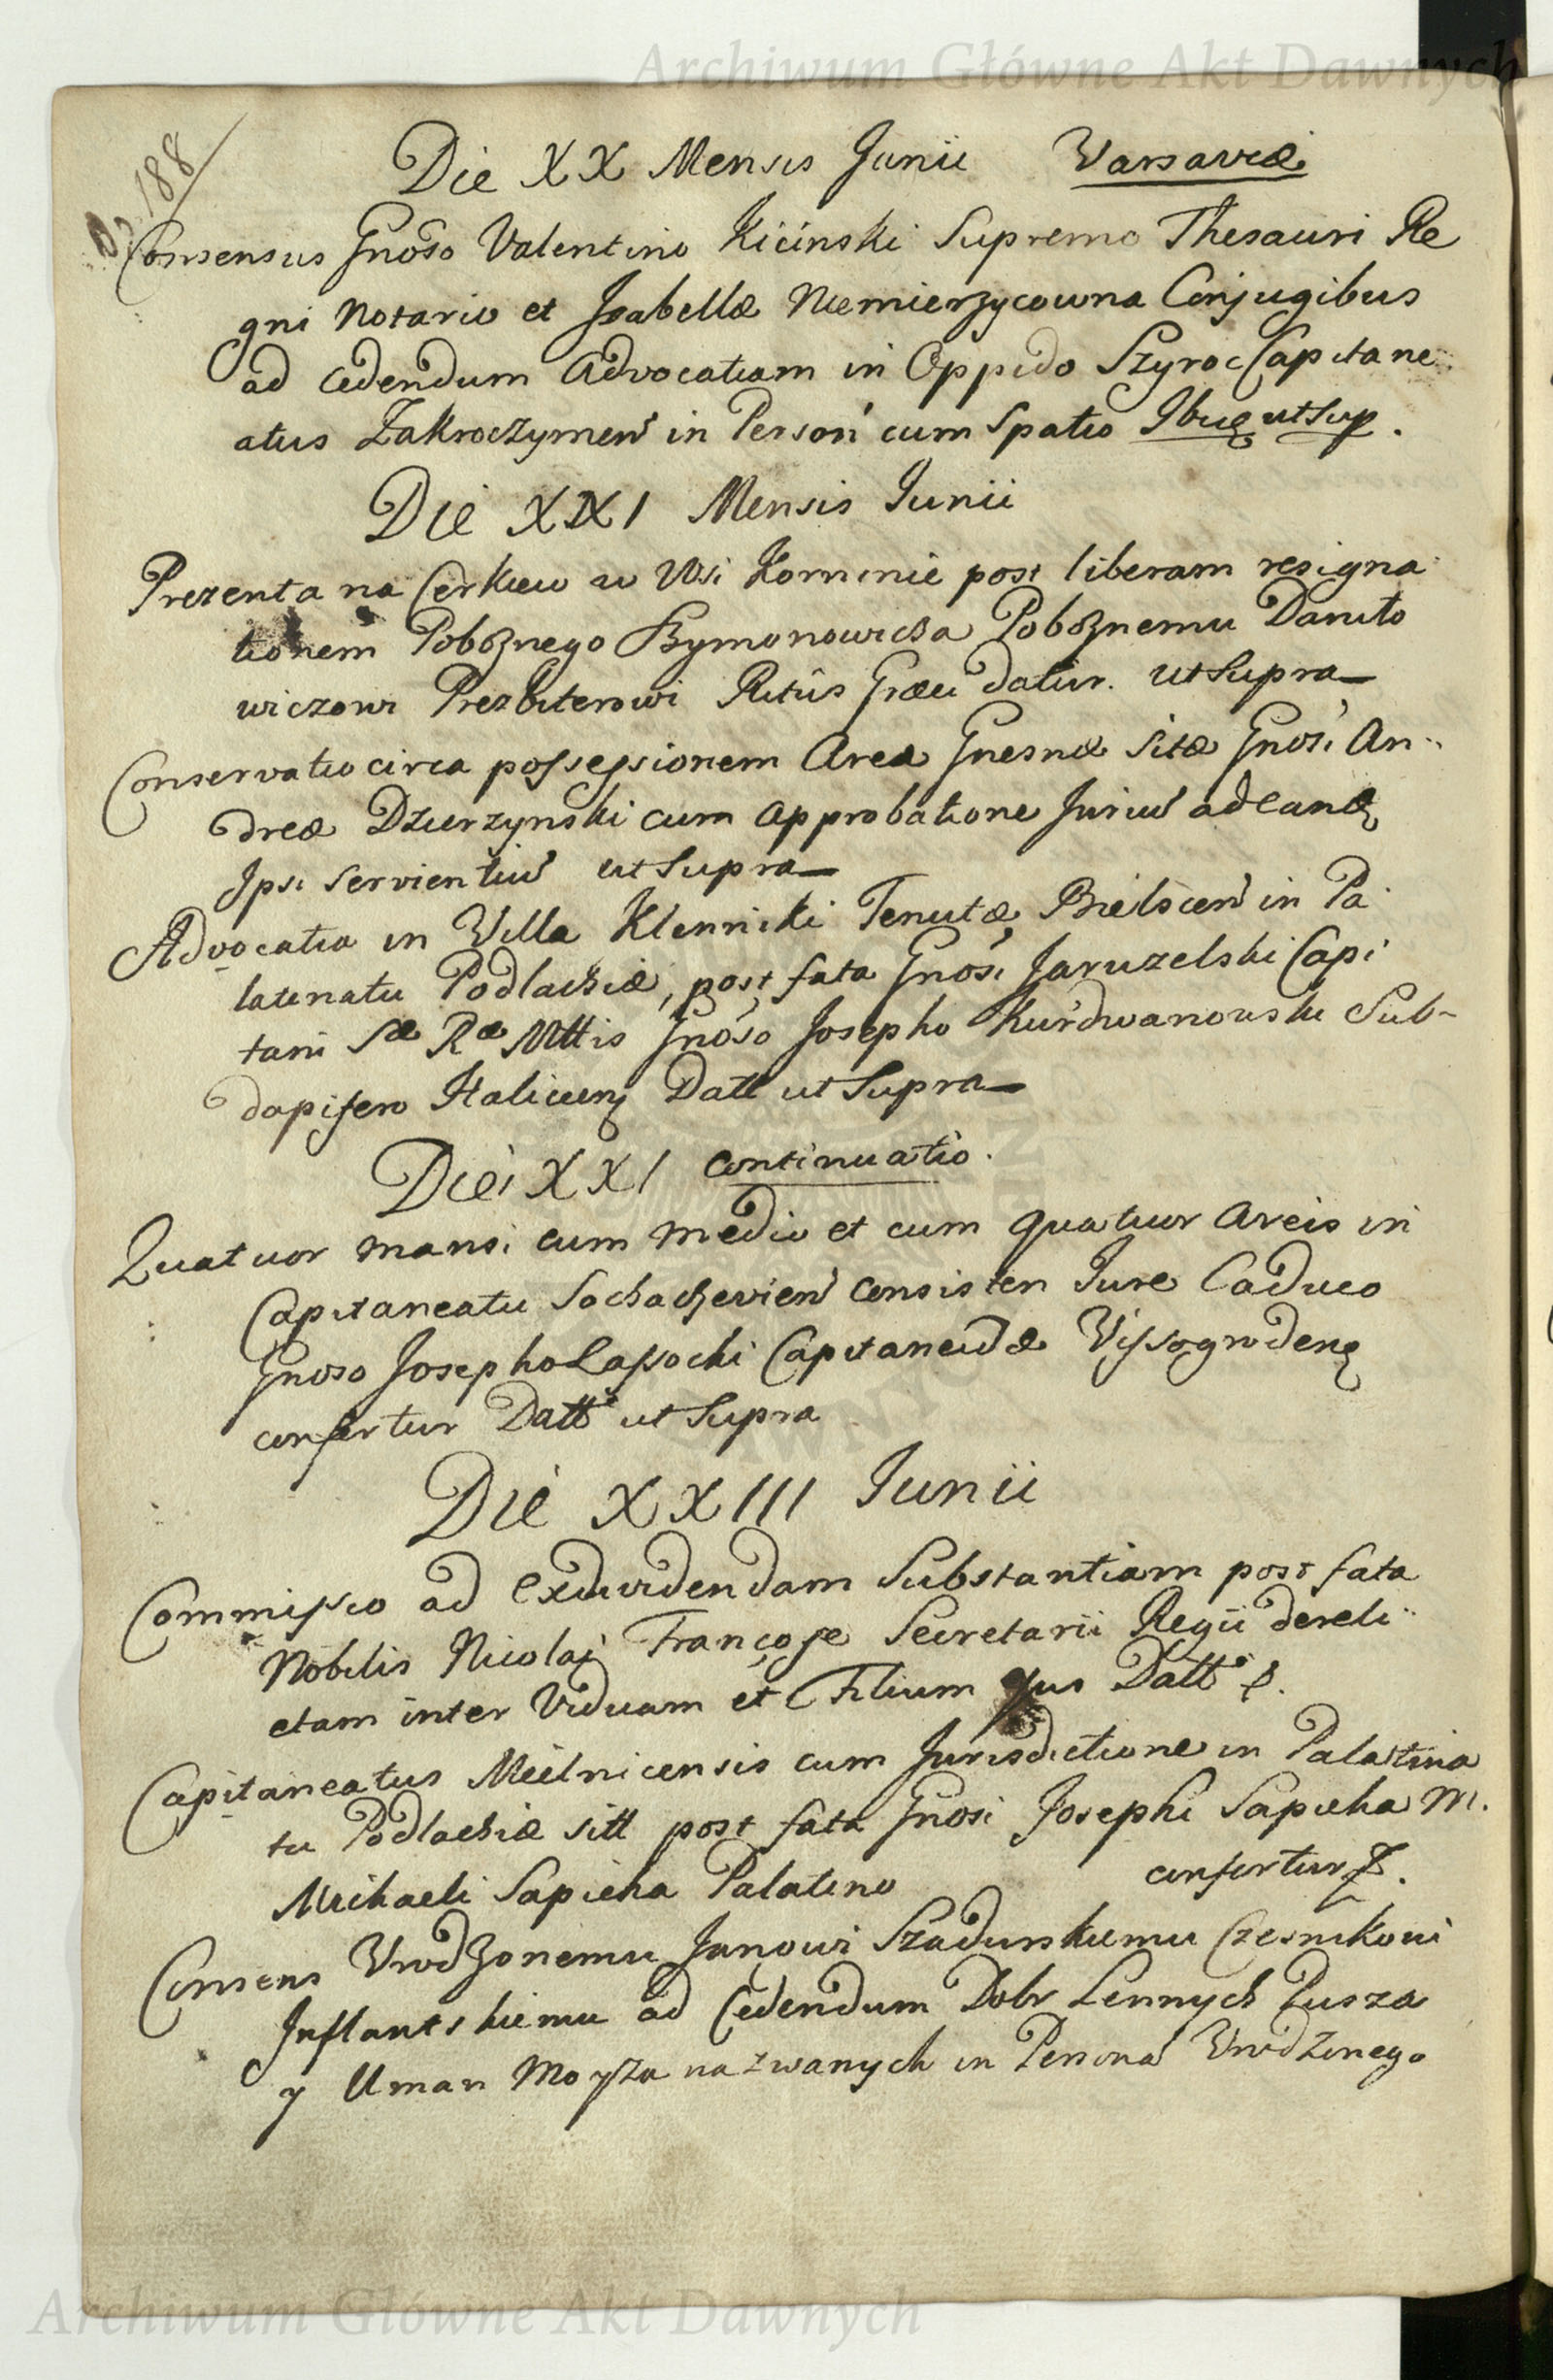 Archiwum Główne Akt Dawnych
188
Die XX Mensis Junii Varsaviæ
Consensus Gnoso Valentino Kicinski Supremo Thesauri Re
gni Notario et Isabellæ Niemierzycowna Conjugibus
ad cedendum Advocatiam in Oppido Szyroc Capitane
atus Zakroczymen in Person cum Spatio Ibiq utSup.
Die XXI Mensis Junii
Prezenta na Cerkiew w Wsi Kominie post liberam resigna
tionem Pobożnego Szymonowicza Pobożnemu Daniło
wiczowi Prezbiterowi Ritûs Græci datur. ut Supra
Conservatio circa possessionem Areæ Gnesnæ Sitæ Gnosi An-
dreæ Dzierzynski cum Approbatione Juriu ad eanq
Ipsi Servientiu ut Supra
Advocatia in Villa Klenniki Tenutæ Bielscen in Pa
latinatu Podlachiæ, post fata Gnosi Jaruzelski Capi
tani Sæ Ræ Mttis Gnoso Josepho Kurdwanowski Sub-
dapifero Haliceng Datt ut Supra
Diei XXI Continuatio.
Quatuor mansi cum medio et cum quatuor Areis in
Capitaneatu Sochaczevien consisten Jure Caduco
Gnoso Josepho Lassocki Capitaneidæ Vissogrodenq
confertur Datt ut Supra
Die XXIII Junii
Commissio ad exdividendam Substantiam post fata
Nobilis Nicolai Françose Secretarii Regii dereli
ctam inter Viduam et Filium ejus Datt
Capitaneatus Mielnicensis cum Jurisdictione in Palatina
tu Podlachiæ sitt post fata Gnosi Josephi Sapieha M.
Michaeli Sapieha Palatino confertur
Consens Urodzonemu Janowi Szadurskiemu Czesnikowi
Inflantskiemu ad Cedendum Dobr Lennych Pusza
y Uman Moyza nazwanych in Persona Urodzonego
Archiwum Główne Akt Dawnych